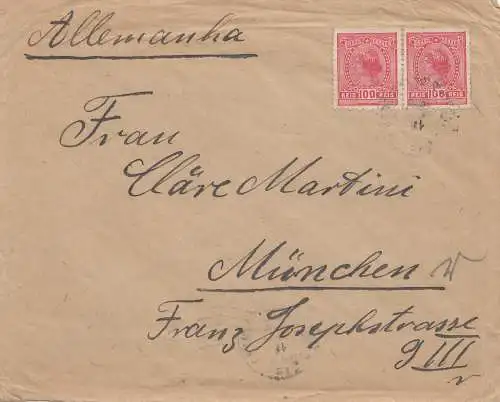 Allemanha
REIS 100 REIS
REIS 100 REIS
Frau
Cläre Martini
München
Franz Josephstrasse
9 III